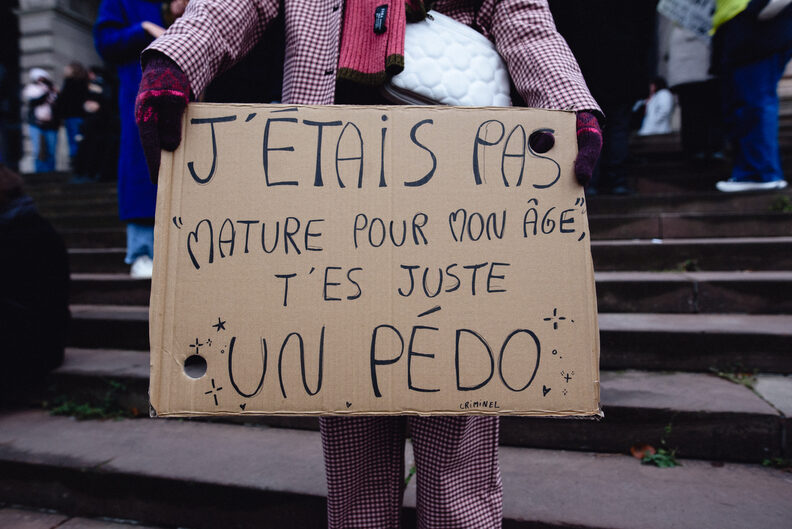 J'ÉTAIS PAS
"MATURE POUR MON ÂGE",
T'ES JUSTE
UN PÉDO
CRIMINEL